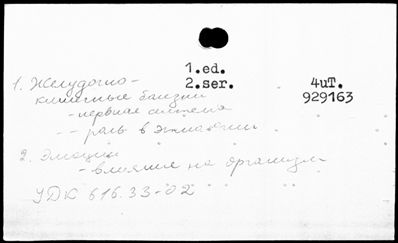 1.ed.
2.ser.
4uT.
929163
1. Желудочно-
кишечные болезни
- нервная система
-- роль в этиологии
2. Эмоции
- влияние на организм
УДК 616.33-02